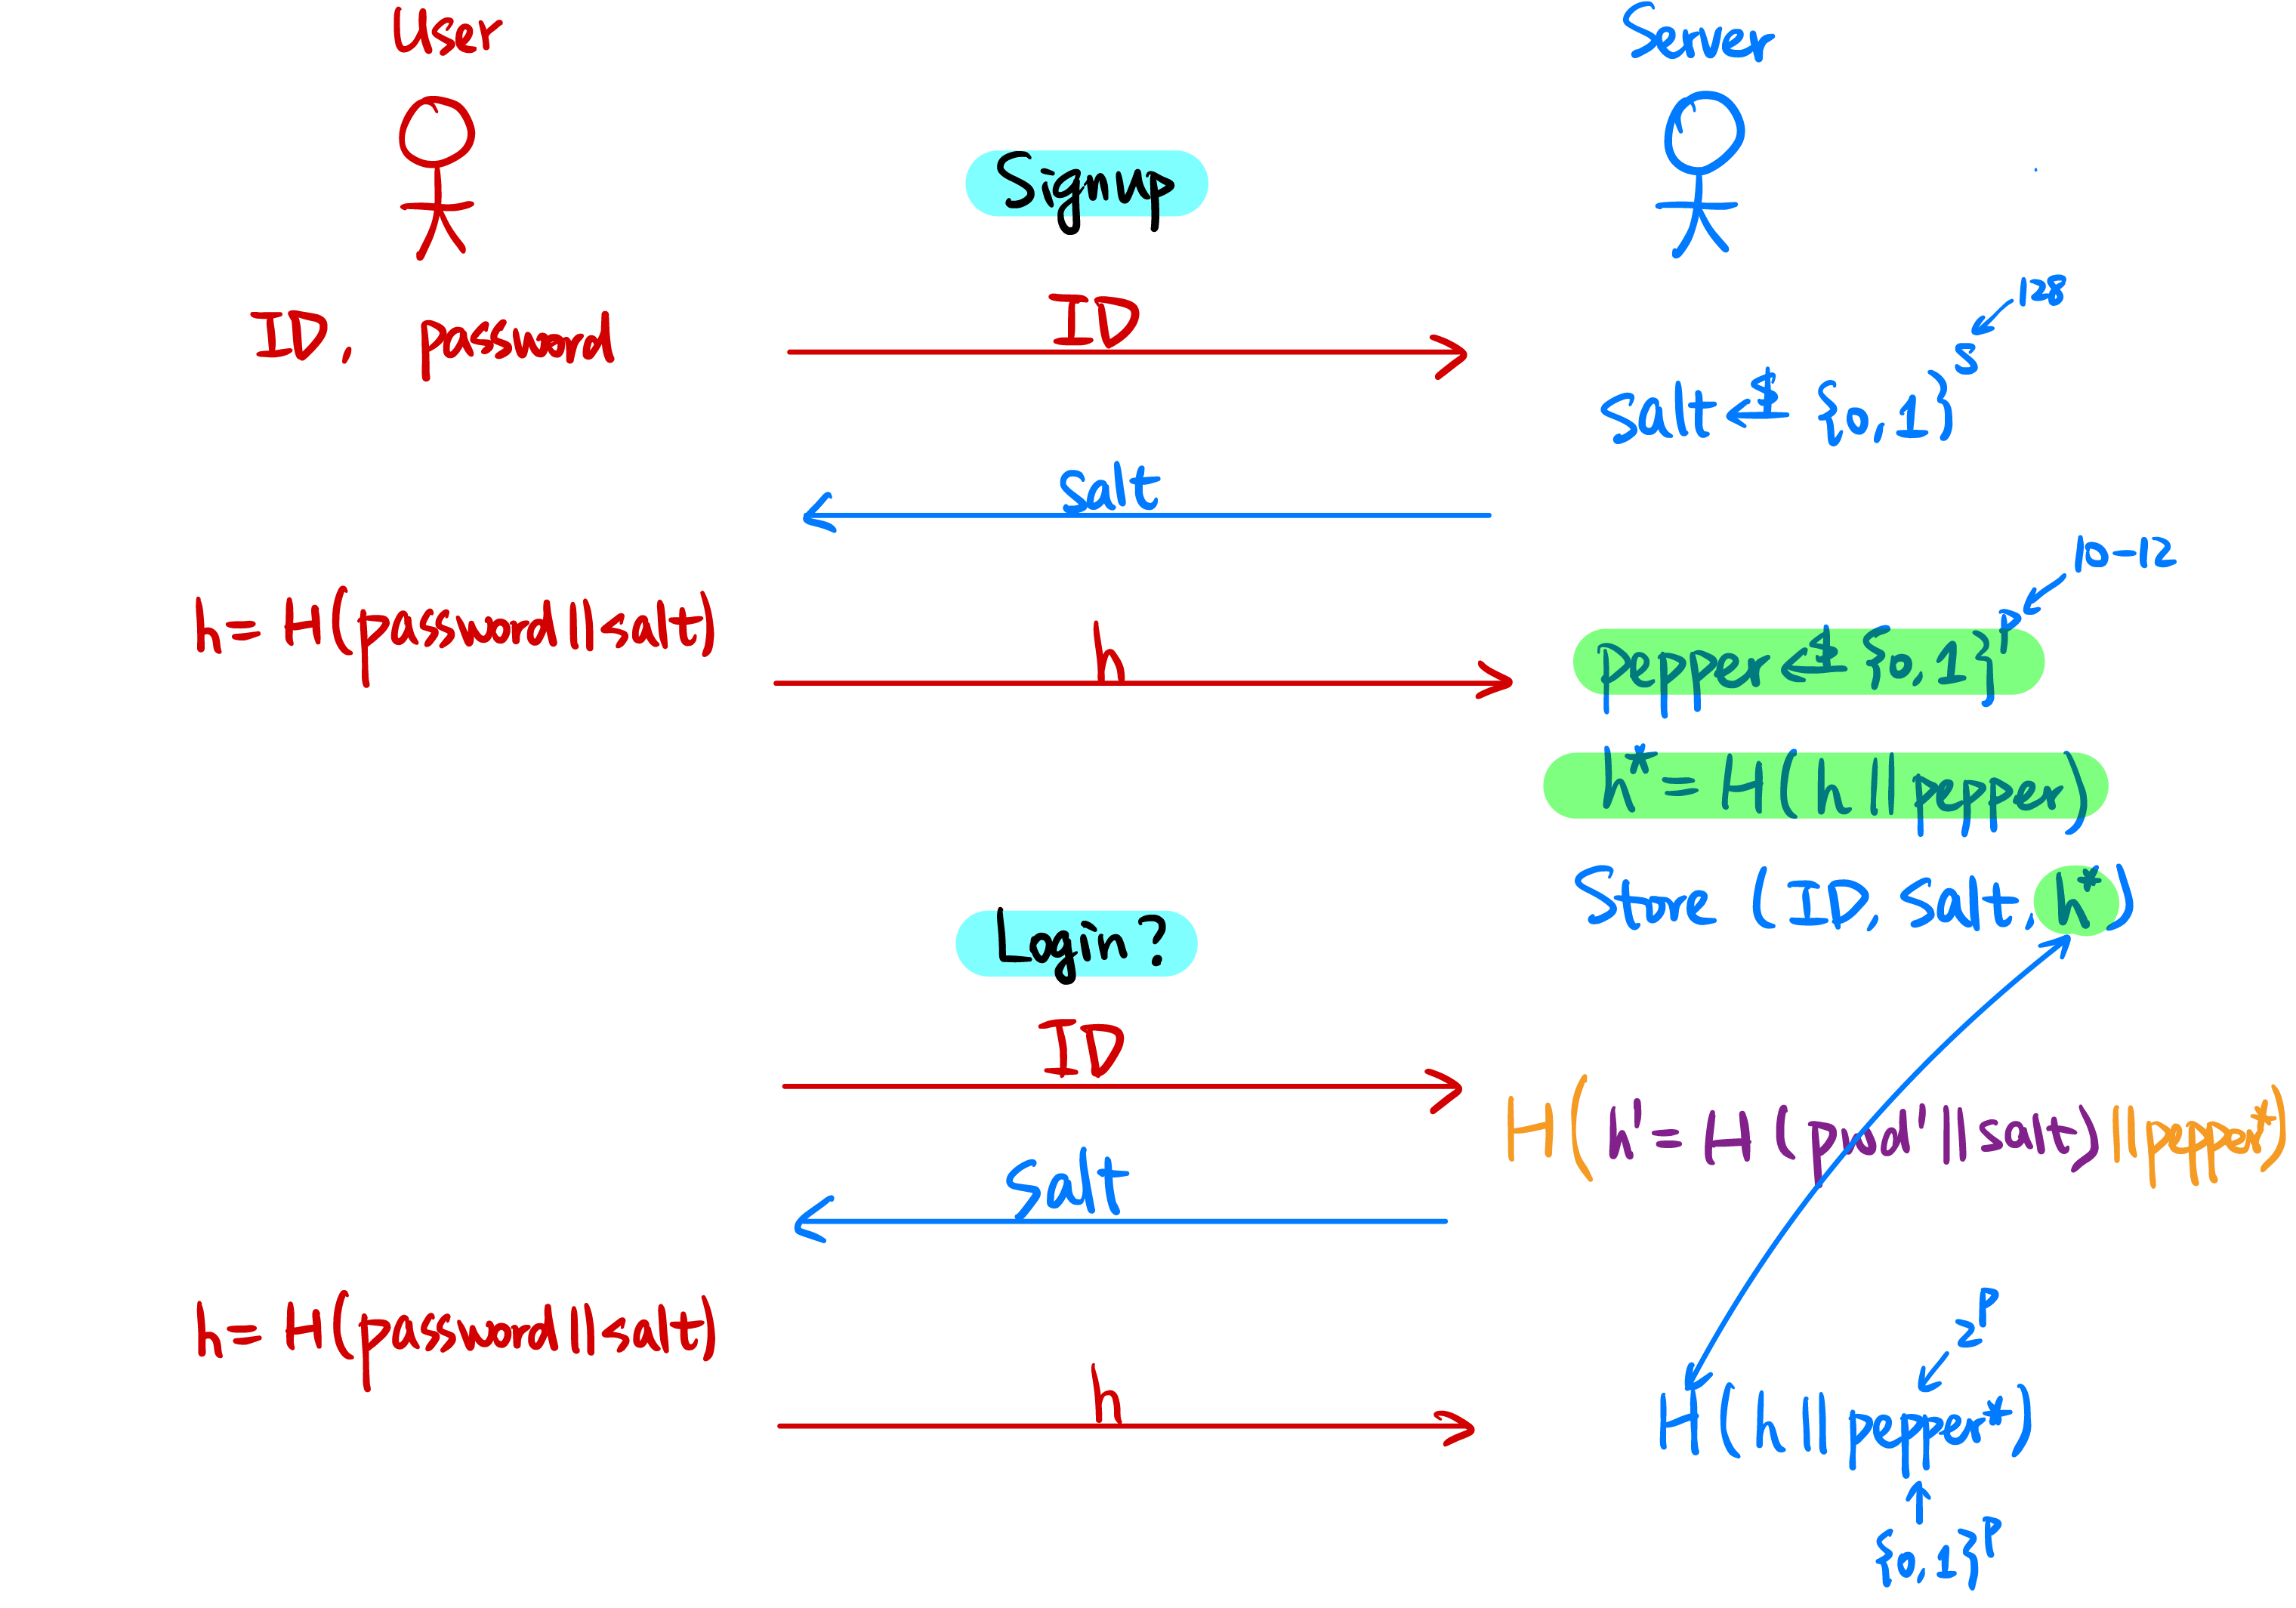 User
Server
Signup
ID, password
ID
128
salt ←$ {0,1}^s
salt
10-12
h = H(password||salt)
h
pepper ←$ {0,1}^p
h* = H(h||pepper)
Store (ID, salt, h*)
Login?
ID
H(h' = H(pwd'||salt)||pepper*)
salt
2^p
h = H(password||salt)
h
H(h||pepper*)
{0,1}^p